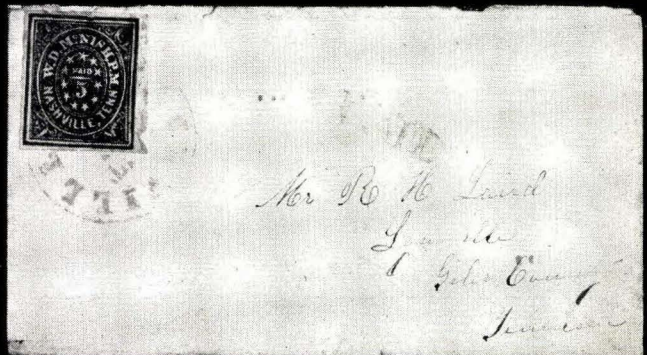 W.D. McNISH, P.M.
PAID
5
NASHVILLE, TENN.
Mr R H Laird
Giles County
Tennessee